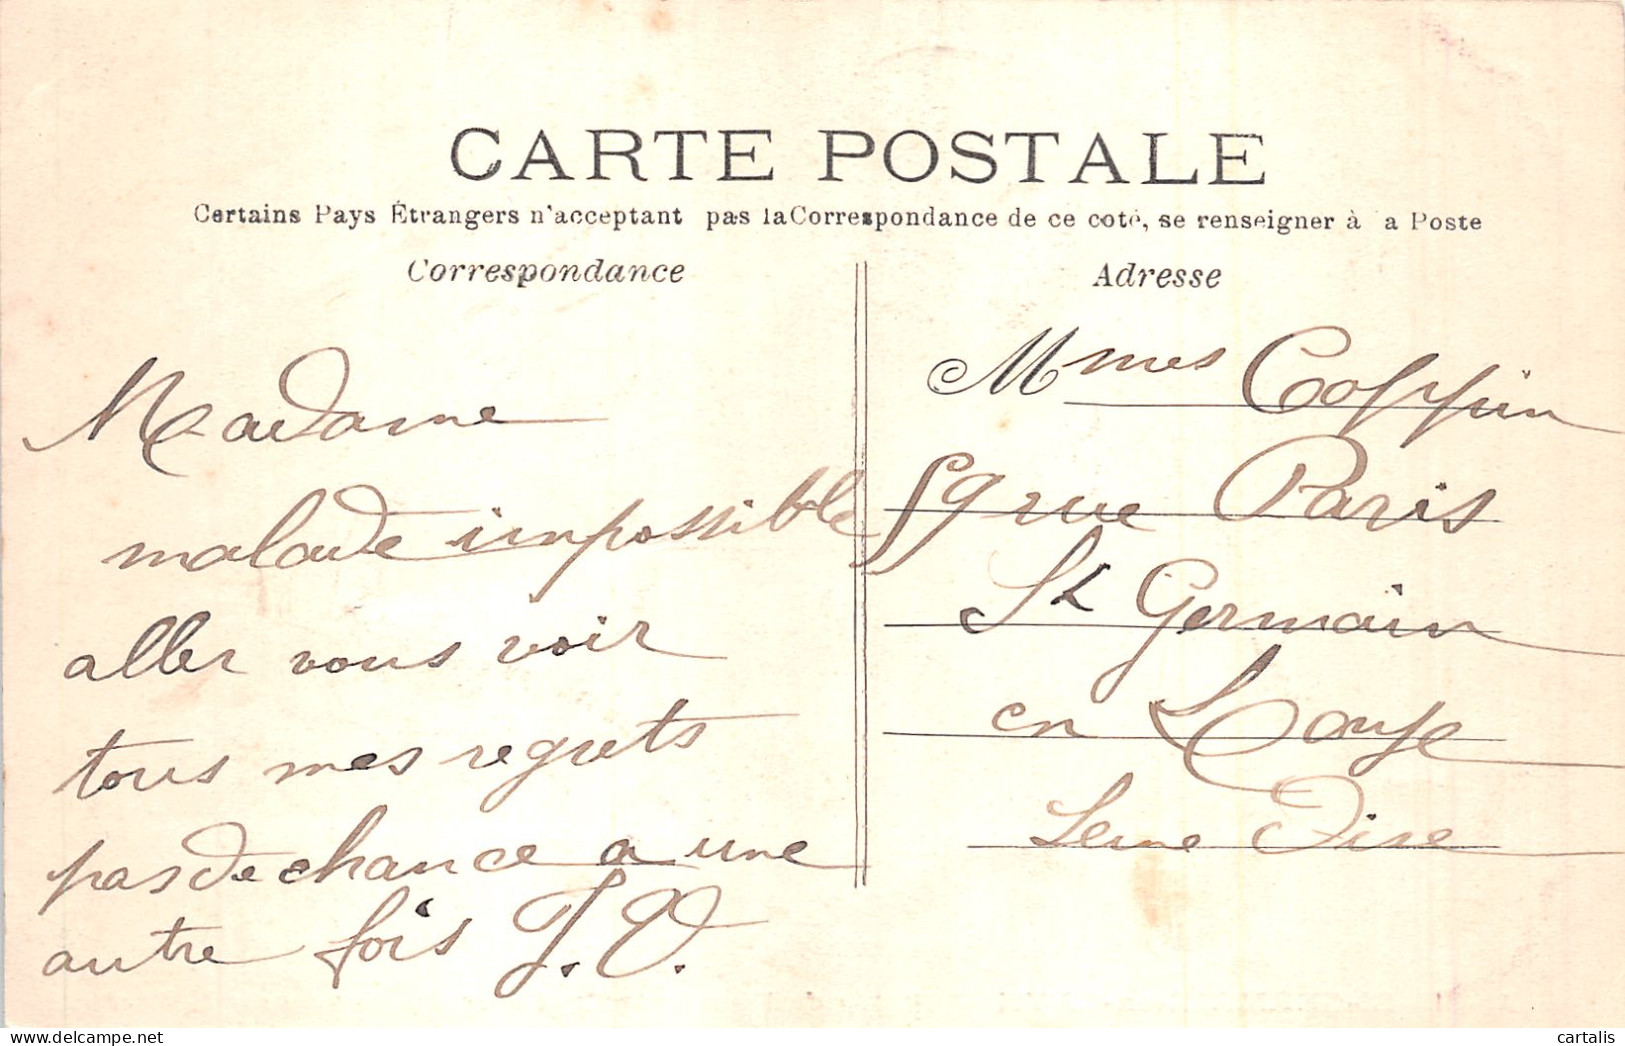 CARTE POSTALE
Certains Pays Étrangers n'acceptant pas la Correspondance de ce coté, se renseigner à la Poste
Correspondance
Madame
malade impossible
aller vous voir
tous mes regrets
pas de chance a une
autre fois J. V.
Adresse
Mmes Coppin
59 rue Paris
St Germain
en Laye
Seine Oise
delcampe.net
cartalis